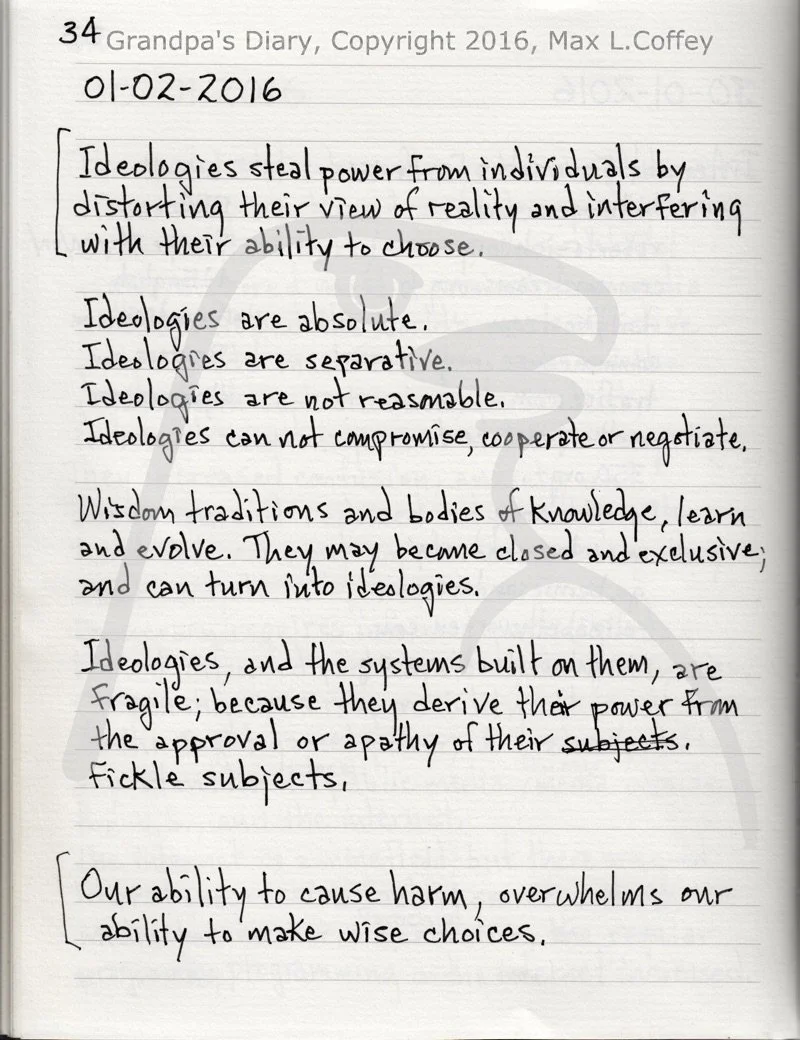 34 Grandpa's Diary, Copyright 2016, Max L.Coffey
01-02-2016
Ideologies steal power from individuals by
distorting their view of reality and interfering
with their ability to choose.
Ideologies are absolute.
Ideologies are separative.
Ideologies are not reasonable.
Ideologies can not compromise, cooperate or negotiate.
Wisdom traditions and bodies of knowledge, learn
and evolve. They may become closed and exclusive;
and can turn into ideologies.
Ideologies, and the systems built on them, are
fragile; because they derive their power from
the approval or apathy of their subjects.
fickle subjects.
Our ability to cause harm, overwhelms our
ability to make wise choices.